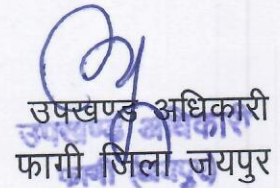 उपखण्ड अधिकारी
फागी जिला जयपुर